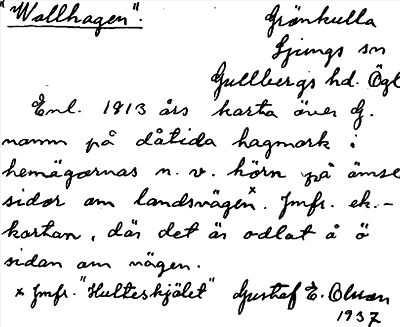 "Wallhagen". Grönkulla
Ljungs sn
Gullbergs hd. Ögl
Enl. 1813 års karta över G.
namn på dåtida hagmark i
hemägornas n. v. hörn på ömse
sidor om landsvägen x. Jmfr. ek.-
kartan, där det är odlat å ö
sidan om vägen.
x Jmfr. "Hulteskjälet" Gustaf E. Olsson
1937